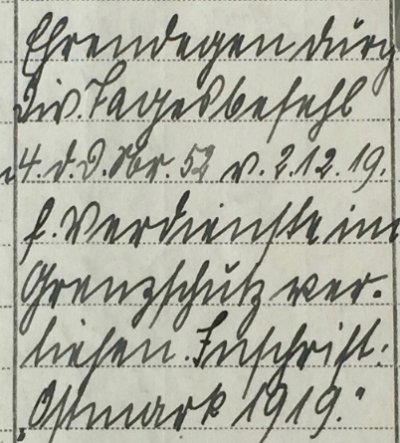 Ehrendegen durch
Div. Tagesbefehl
4. d. D. Nr. 52 v. 2.12.19.
f. Verdienste im
Grenzschutz ver-
liehen. Inschrift:
„Ostmark 1919."